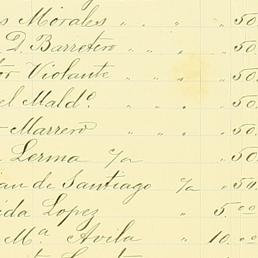 s Morales " " " 50.
D. Barretero " " " 50.
or Violante " " " 50.
el Mald.º " " 50.
Marrero " 50.
Lerma c/a " 50.
an de Santiago c/a 54.
ida Lopez " 5.00
Mª Avila " 10.00